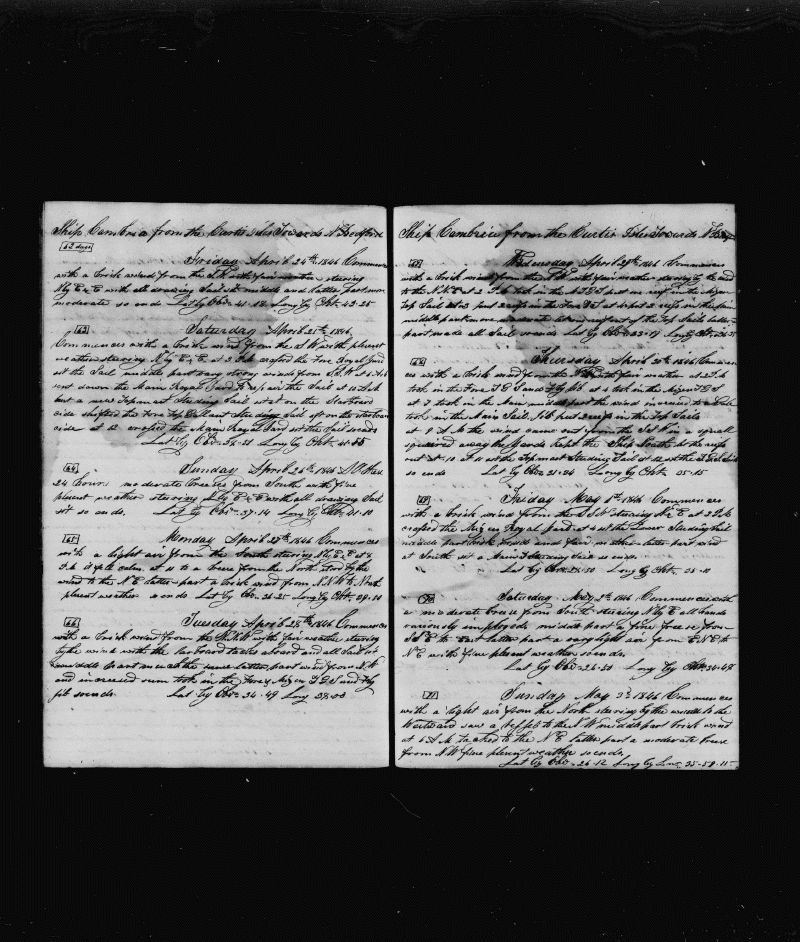 Ship Cambria from the Curtis Isles Towards N Bedford
62 days
Friday April 24th 1846 Commences
with a brisk wind from the fair weather steering
N by E & E with all drawing Sail sit middle and latter part more
moderate so ends Lat by Obs 41-18 Long by Chr 43-25
63
Saturday April 25th 1846
Commences with a brisk wind from the S W with plesent
weather stearing N by E & E at 3 P.M crosed the Fore Royal Yard
set the Sail middle part wind from S W at 6 A M
sent down the Main Royal Yard the Sail at 10 A M
but a new Topmast Studing Sail set on the Starboard
side shifted the Fore top Gallant Studing sail off on the starboard
side at 12 crosed the Main Royal Yard set the Sail so ends
Lat by Obs 39-21 Long by Chr 41-55
64
Sunday April 26th 1846
24 hours moderate breezes from South with fine
plesent weather stearing N by E & E with all drawing Sail
sit so ends. Lat by Obs 37-14 Long by Chr 41-10
65
Monday April 27th 1846 Commences
with a light air from the South stearing N by E & E at 8
P.M it fell calm at 10 to a breeze from the North stood by the
wind to the N E latter part a brisk wind from N N W to North
plesent weather so ends Lat by Obs 36-25 Long by Chr 39-50
66
Tuesday April 28th 1846 Commences
with a brisk wind from the N N W with fair weather stearing
by the wind with the larboard tacks aboard and all Sail sit
middle part much the same latter part wind from N W
and increased some took in the Fore & Mizen T G S and Fly
jib so ends. Lat by Obs 34-49 Long 38-00
Ship Cambria from the Curtis Isles Towards N Bedford
67
Wednesday April 29th 1846 Commences
with a brisk wind from the with fair weather stearing by the wind
to the N E at 2 P.M took in the M T G S put one reef in the Mizen
top Sail at 3 put 2 reefs in the Fore T S at 4 put 2 reefs in the
middle part more moderate out of the top Sails latter
part made all Sail so ends Lat by Obs 33-07 Long by Chr
68
Thursday April 30th 1846 Commen
ces with a brisk wind from the North fair weather at 2 P.M
took in the Fore T G S and Fly jib at 4 took in the Mizen T G S
at 7 took in the Main middle part the wind increased to a Gale
took in the Main Sail Jib put 2 reefs in the Top Sails
at 8 A.M the wind came out from the S W in a squall
squared away the Yards kept the Ship South let the reefs
out at 10 at 11 set the topmast Studing Sail at 12 set the T G S Sail
so ends Lat by Obs 31-24 Long by Chr 35-15
69
Friday May 1st 1846 Commences
with a brisk wind from the S W stearing N & E at 3 P.M
crosed the Mizen Royal Yard at 4 set the Lower Studing Sail
middle part brisk winds and fair weather latter part wind
at South sit a Main Studing Sail so ends.
Lat by Obs 28-50 Long by Chr 35-10
70
Saturday May 2nd 1846 Commences with
a moderate breeze from South stearing N by E all hands
variously imployed middle part a fine breeze from
S E to East latter part a very light air from E N E to
N E with fine plesent weather so ends.
Lat by Obs 26-50 Long by Chr 34-48
71
Sunday May 3rd 1846 Commences
with a light air from the North stearing by the wind to the
Westward saw a Ship to the N W middle part brisk wind
at 6 A.M tacked to the N E latter part a moderate breeze
from N W fine plesent weather so ends.
Lat by Obs 26-12 Long by Lun 35-58-15